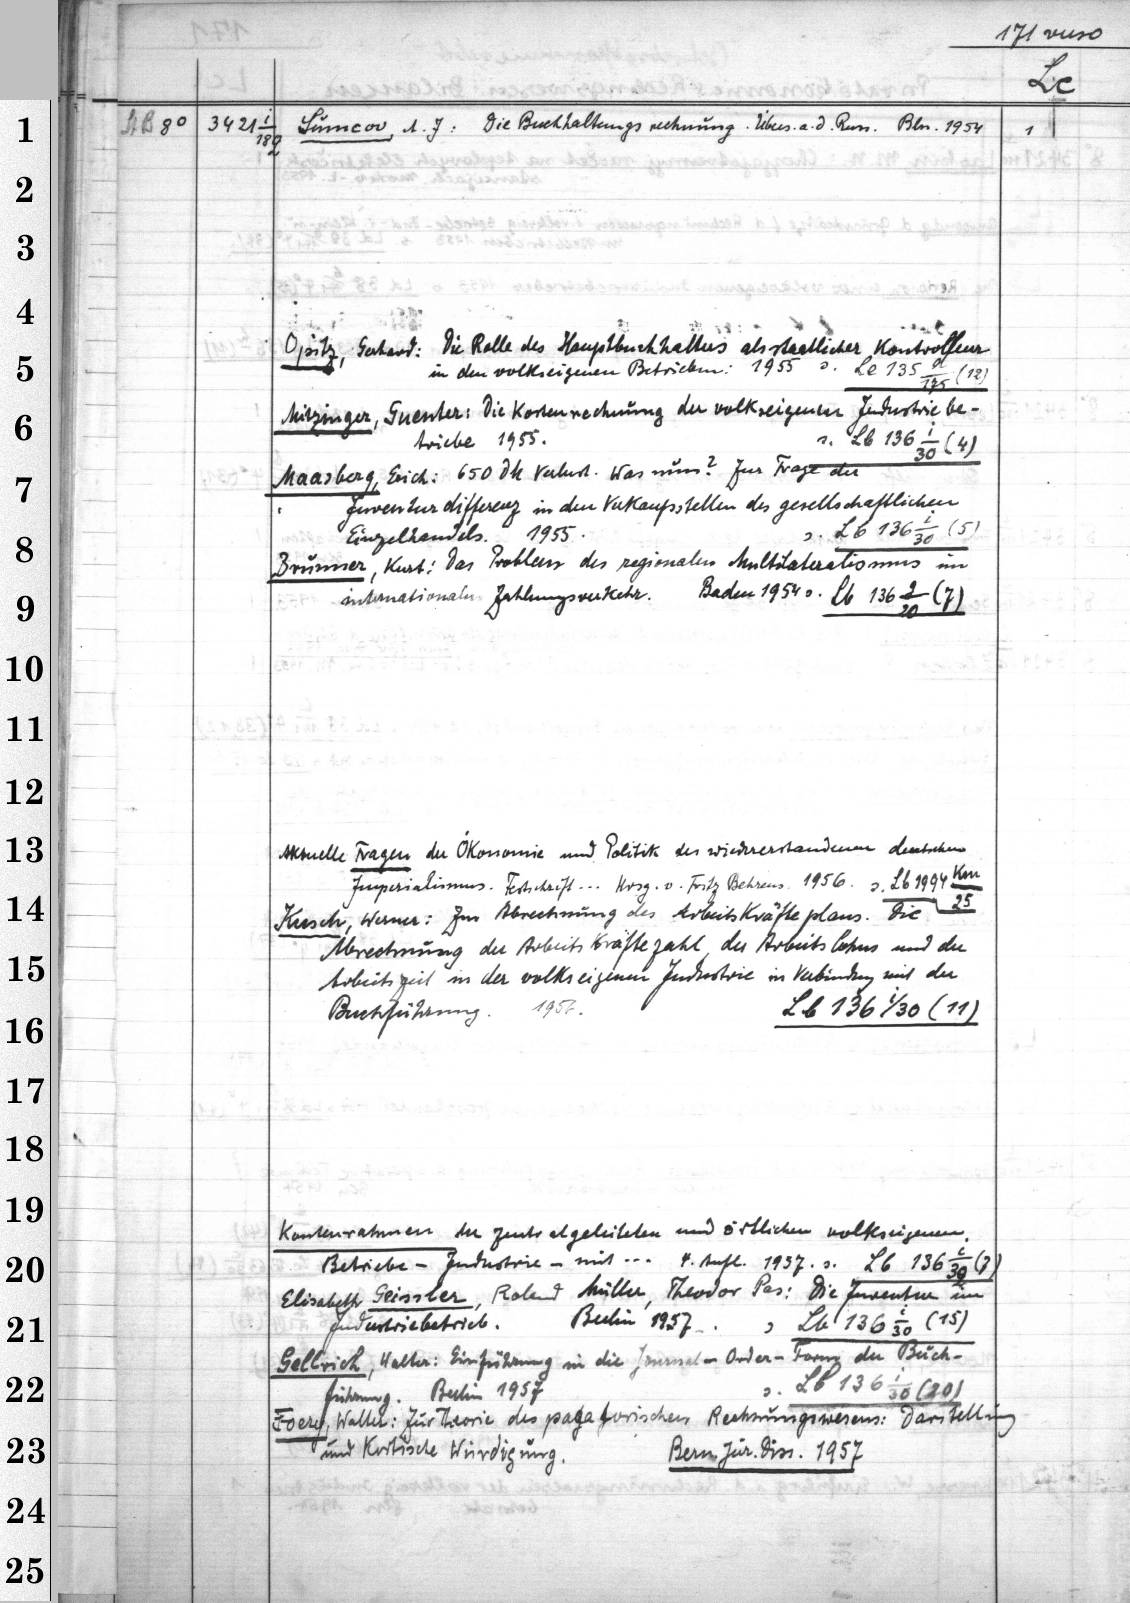 171 verso
Lc
1 AB 8° 3421 i/182 Šumcov, A. J.: Die Buchhaltungsrechnung. Übers. a. d. Russ. Bln. 1954 1
2
3
4
Opitz, Gerhard: Die Rolle des Hauptbuchhalters als staatlicher Kontrolleur
5 in den volkseigenen Betrieben: 1955 s. Le 135 a/175 (12)
6 Mitzinger, Guenter: Die Kostenrechnung der volkseigenen Industriebe-
triebe 1955. s. Lb 136 i/30 (4)
7 Maasberg, Erich: 650 DM Verlust. Was nun? Zur Frage der
Inventurdifferenz in den Verkaufsstellen des gesellschaftlichen
8 Einzelhandels. 1955. s. Lb 136 i/30 (5)
Brunner, Kurt: Das Problem des regionalen Multilateralismus im
9 internationalen Zahlungsverkehr. Baden 1954 s. Lb 136 2/20 (7)
10
11
12
13 Aktuelle Fragen der Ökonomie und Politik des wiedererstandenen deutschen
Imperialismus. Festschrift ... Hrsg. v. Fritz Behrens. 1956. s. Lb 1994 Km/25
14 Kusch, Werner: Zur Abrechnung des Arbeitskräfteplans. Die
Abrechnung der Arbeitskräftezahl, des Arbeitslohns und der
15 Arbeitszeit in der volkseigenen Industrie in Verbindung mit der
16 Buchführung. 1956. Lb 136 i/30 (11)
17
18
19
Kontenrahmen der zentralgeleiteten und örtlichen volkseigenen
20 Betriebe – Industrie – mit ... 4. Aufl. 1957. s. Lb 136 i/30 (7)
Elisabeth Geissler, Roland Müller, Theodor Pas: Die Inventur im
21 Industriebetrieb. Berlin 1957. s. Lb 136 i/30 (15)
Gellrich, Walter: Einführung in die Journal-Order-Form der Buch-
22 führung. Berlin 1957 s. Lb 136 i/30 (20)
Foery, Walter: Zur Theorie des pagatorischen Rechnungswesens: Darstellung
23 und Kritische Würdigung. Bern. Jur. Diss. 1957
24
25